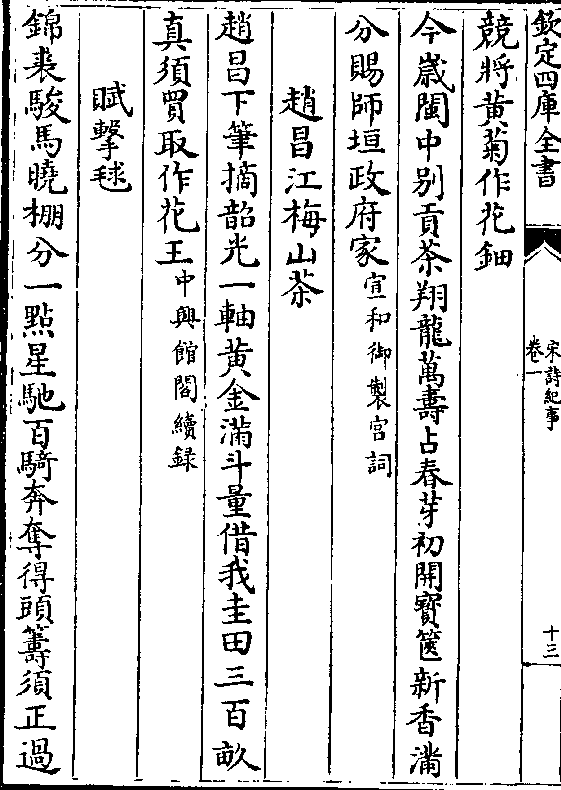 欽定四庫全書
宋詩紀事
卷一
十三
競將黃菊作花鈿
今歲閩中别貢茶翔龍萬壽占春芽初開寶篋新香滿
分賜師垣政府家宣和御製宫詞
趙昌江梅山茶
趙昌下筆摘韶光一軸黃金滿斗量借我圭田三百畝
真須買取作花王中興館閣續録
賦擊毬
錦裘駿馬曉棚分一點星馳百騎奔奪得頭籌須正過